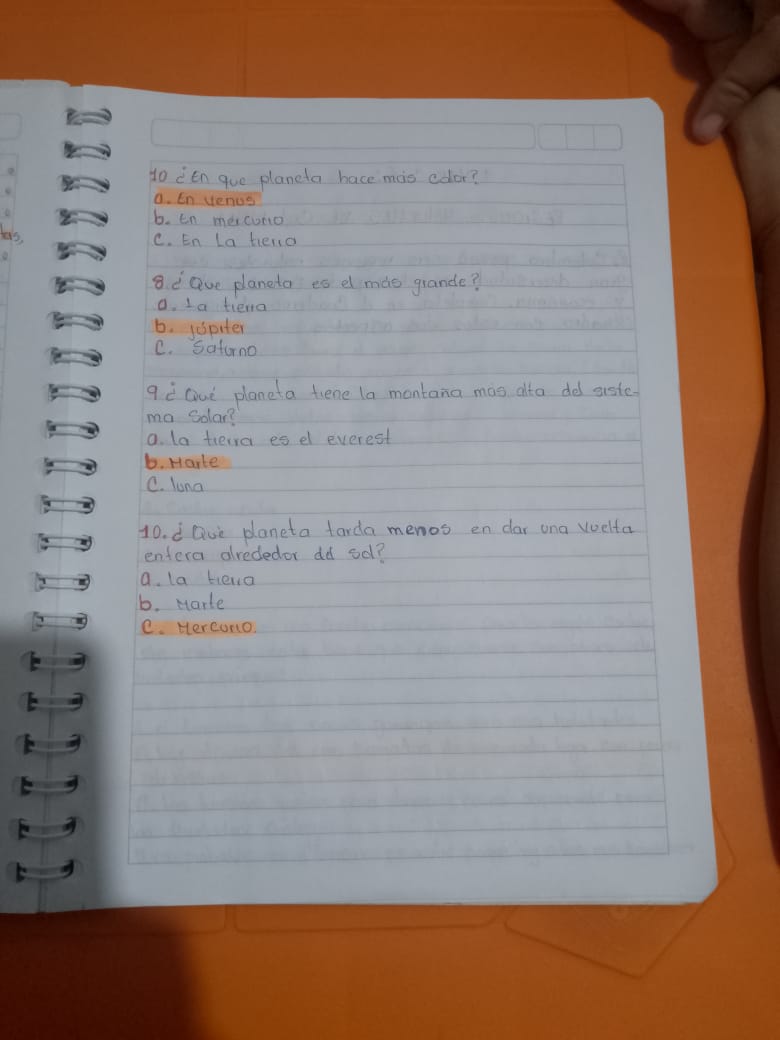 10 ¿En que planeta hace más calor?
a. En venus
b. En mercurio
C. En La tierra
8. ¿Que planeta es el más grande?
a. La tierra
b. júpiter
C. Saturno
9 ¿Qué planeta tiene la montaña más alta del siste-
ma Solar?
a. la tierra es el everest
b. Marte
C. luna
10. ¿Qué planeta tarda menos en dar una vuelta
entera alrededor del sol?
a. la tierra
b. Marte
C. Mercurio.
tas,